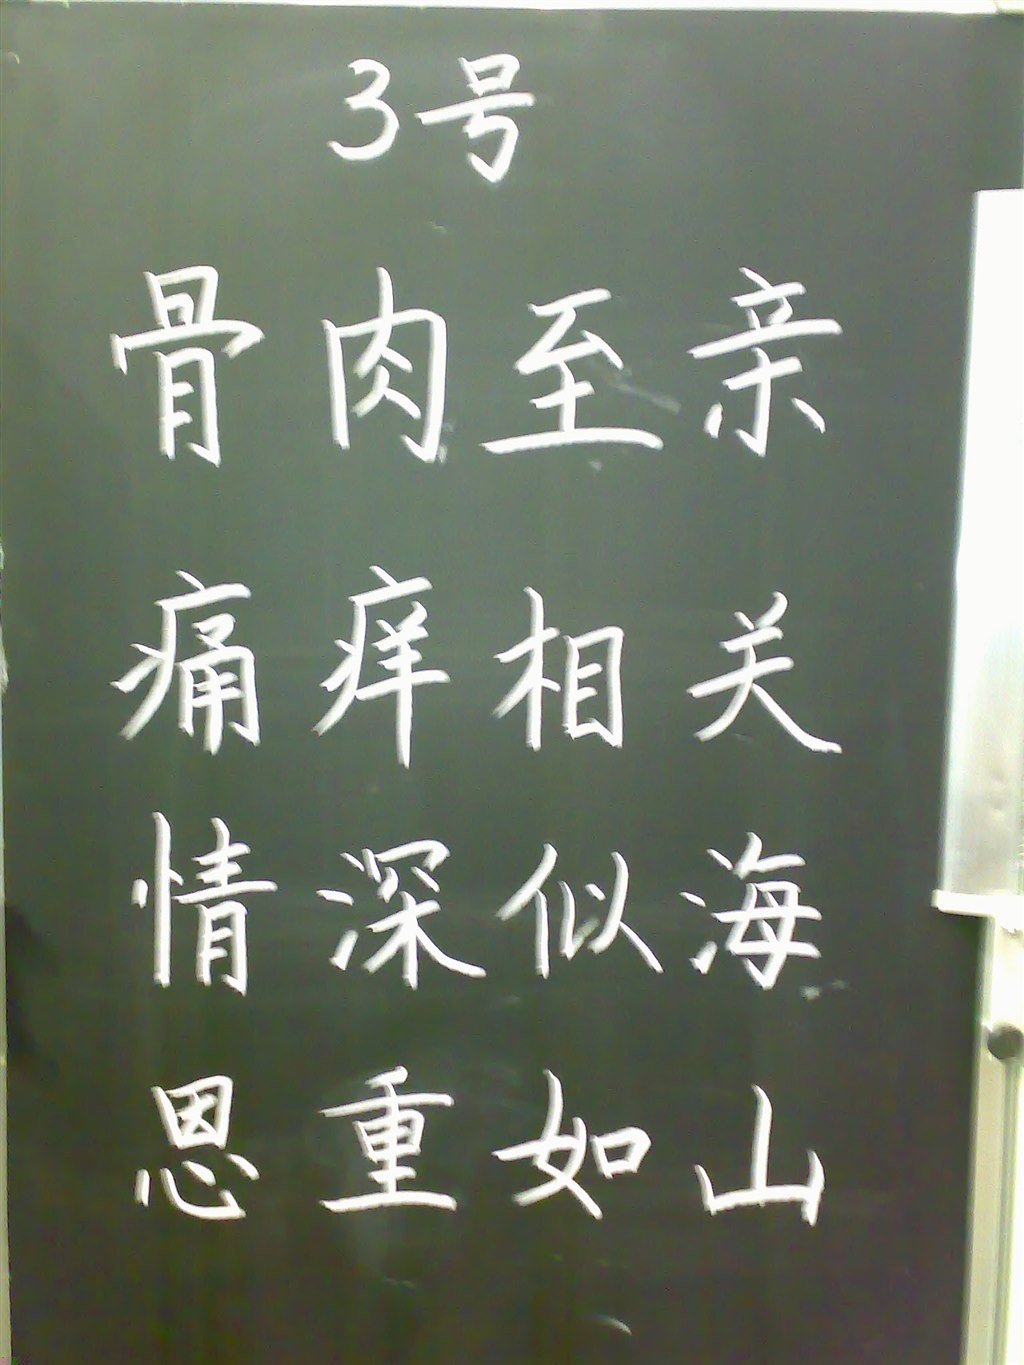 3号
骨肉至亲
痛痒相关
情深似海
恩重如山